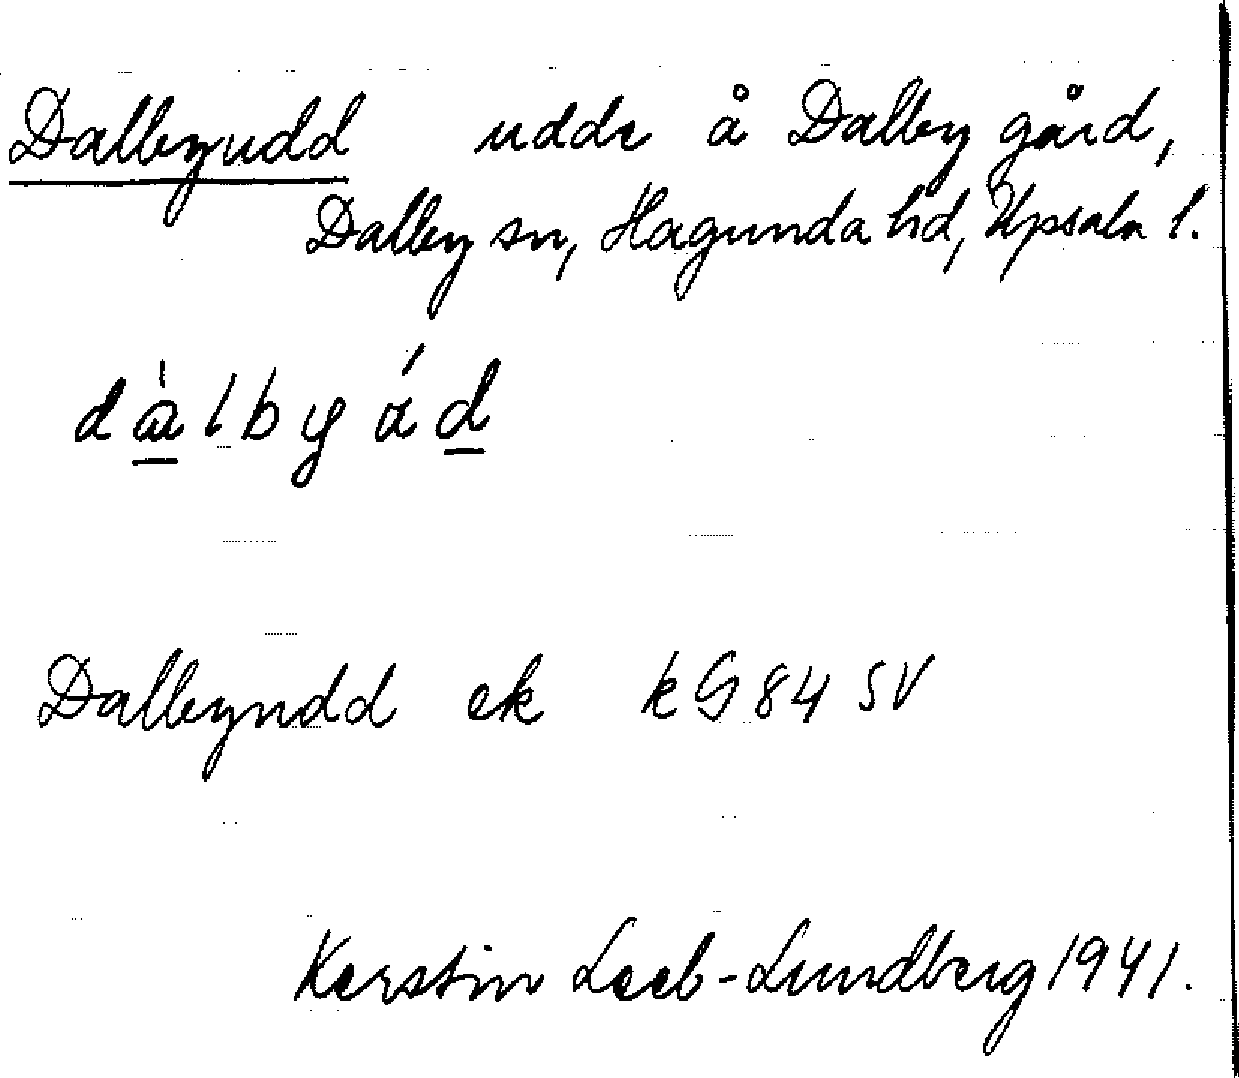 Dalbyudd udde å Dalby gård,
Dalby sn, Hagunda hd, Upsala l.
Dalbyudd ek kG 84 SV
Kerstin Leeb-Lundberg 1941.